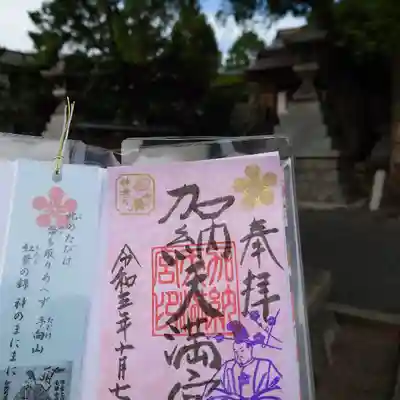 奉拝
加納天満宮
加納
令和三年十月七
此のたびは
幣も取りあへず
手向山
たむけ
紅葉の錦
神のまにまに